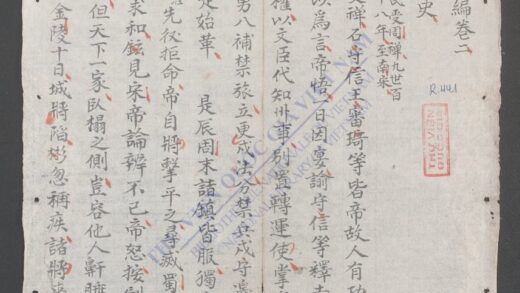 編卷二
史
氏受周禪九世百
八年至南宋
文禪石守信王審琦等皆帝故人有功
以為言帝悟一日因宴諭守信等釋去
權以文臣代知州事別置轉運使掌
男八補禁旅立更戍出分禁兵戍守邊
定始華 是辰周末諸鎮皆服獨
先後拒命帝自將擊平之尋滅蜀
求和鉉見宋帝論辨不已帝怒按劍
但天下一家臥榻之側豈容他人鼾睡
金陵十日城將陷彬忽稱疾諸將來
R.441
THƯ VIỆN
QUỐC GIA
THƯ VIỆN QUỐC GIA VIỆT NAM
NATIONAL LIBRARY OF VIETNAM